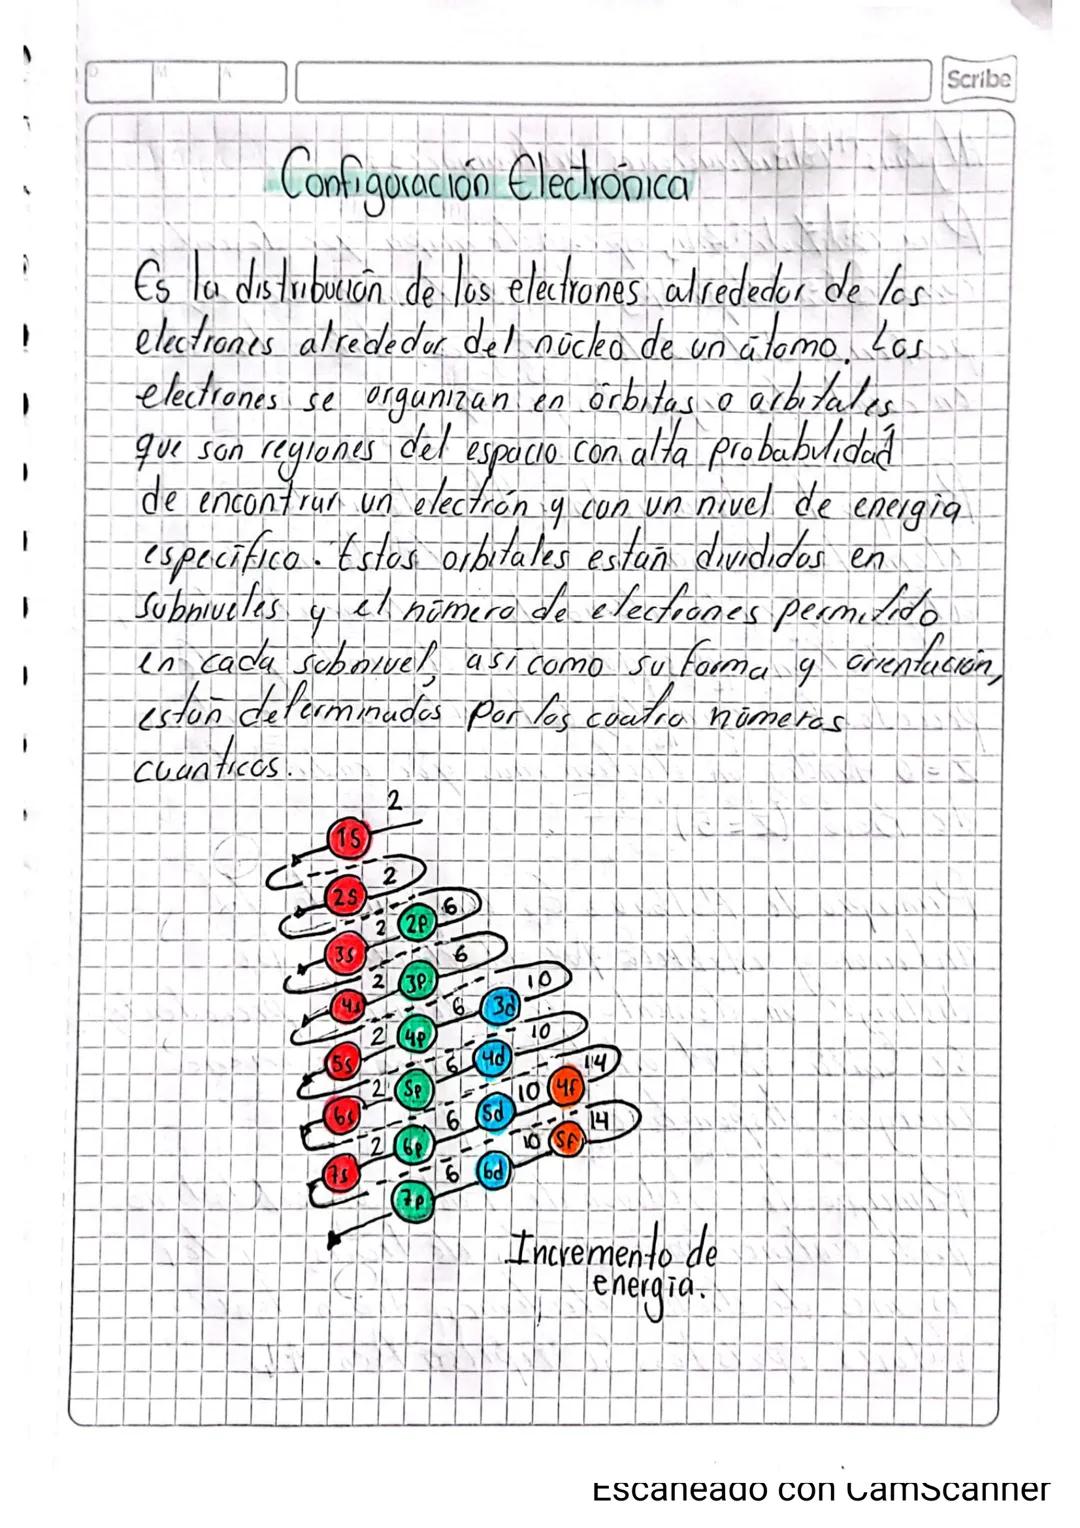 D M A
Scribe
Configuración Electrónica
Es la distribución de los electrones alrededor de los
electrones alrededor del núcleo de un átomo. Los
electrones se organizan en órbitas o orbitales
que son regiones del espacio con alta probabulidad
de encontrar un electrón y con un nivel de energía
específico. Estos orbitales están divididos en
subniveles y el número de electrones permitido
en cada subnivel, así como su forma y orientación,
están determinados por los cuatro números
cuanticos.
2
1s
2
2s 6
2 2p
3s 6
2 3p 10
4s 6 3d
2 4p 10
5s 6 4d 14
2 5p 10 4f
6s 6 5d 14
2 6p 10 5f
7s 6 6d
7p
Incremento de
energía.
Escaneado con CamScanner